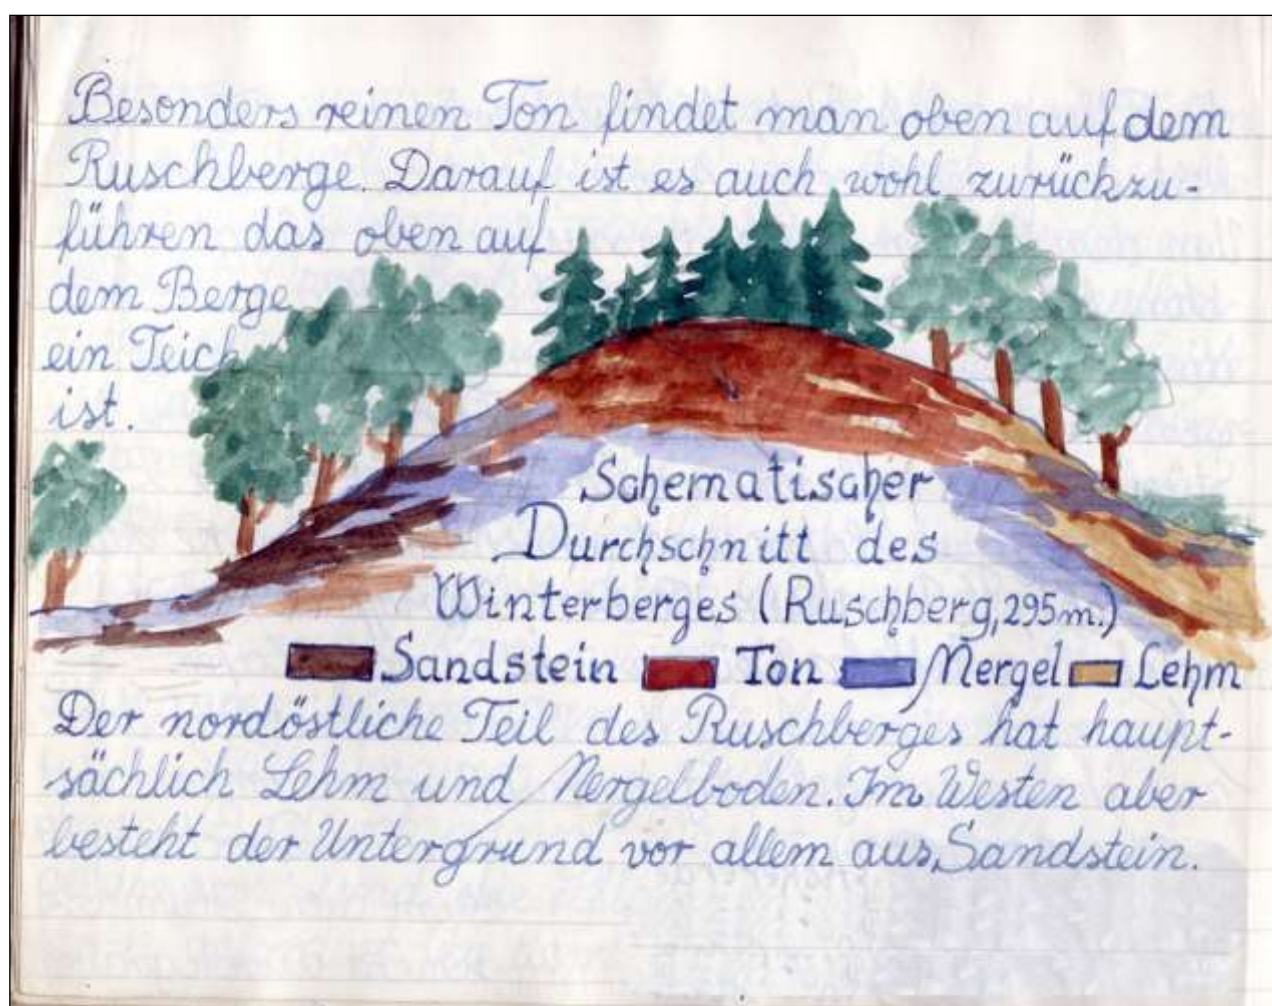 Besonders reinen Ton findet man oben auf dem
Ruschberge. Darauf ist es auch wohl zurückzu-
führen das oben auf
dem Berge
ein Teich
ist.
Schematischer
Durchschnitt des
Winterberges (Ruschberg, 295m.)
Sandstein Ton Mergel Lehm
Der nordöstliche Teil des Ruschberges hat haupt-
sächlich Lehm und Mergelboden. Im Westen aber
besteht der Untergrund vor allem aus Sandstein.